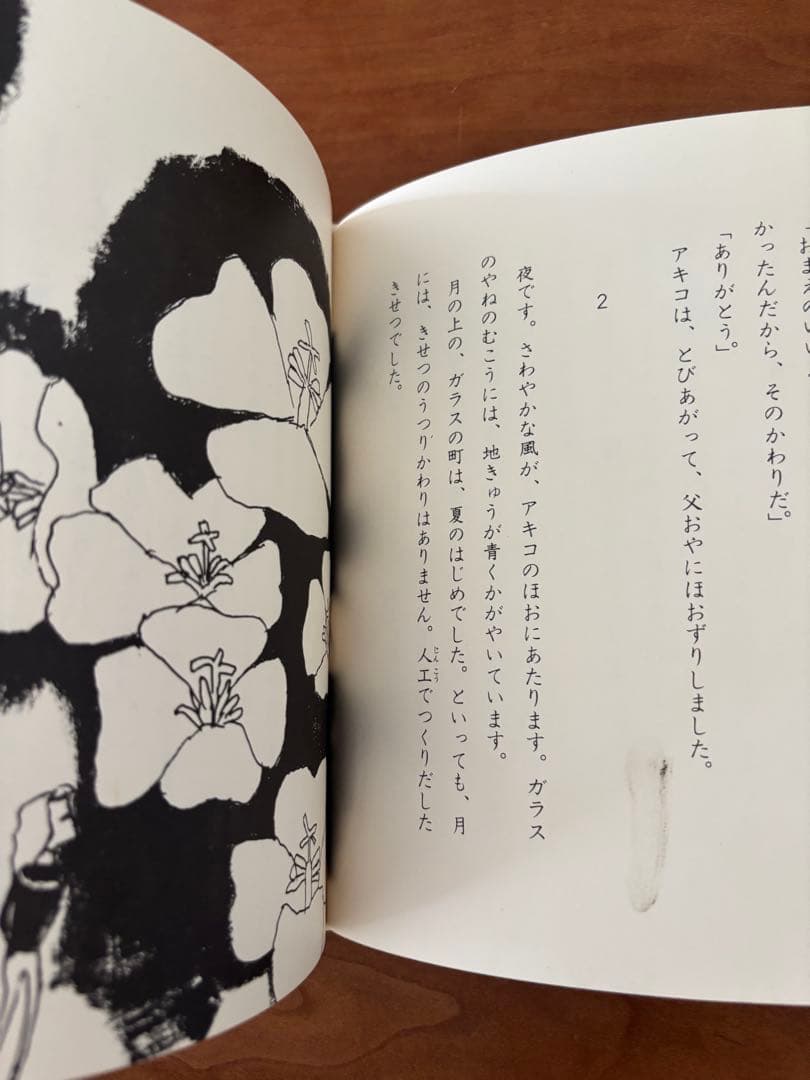 「おまえのいい
かったんだから、そのかわりだ。」
「ありがとう。」
アキコは、とびあがって、父おやにほおずりしました。
2
夜です。さわやかな風が、アキコのほおにあたります。ガラス
のやねのむこうには、地きゅうが青くかがやいています。
月の上の、ガラスの町は、夏のはじめでした。といっても、月
には、きせつのうつりかわりはありません。人工でつくりだした
じんこう
きせつでした。